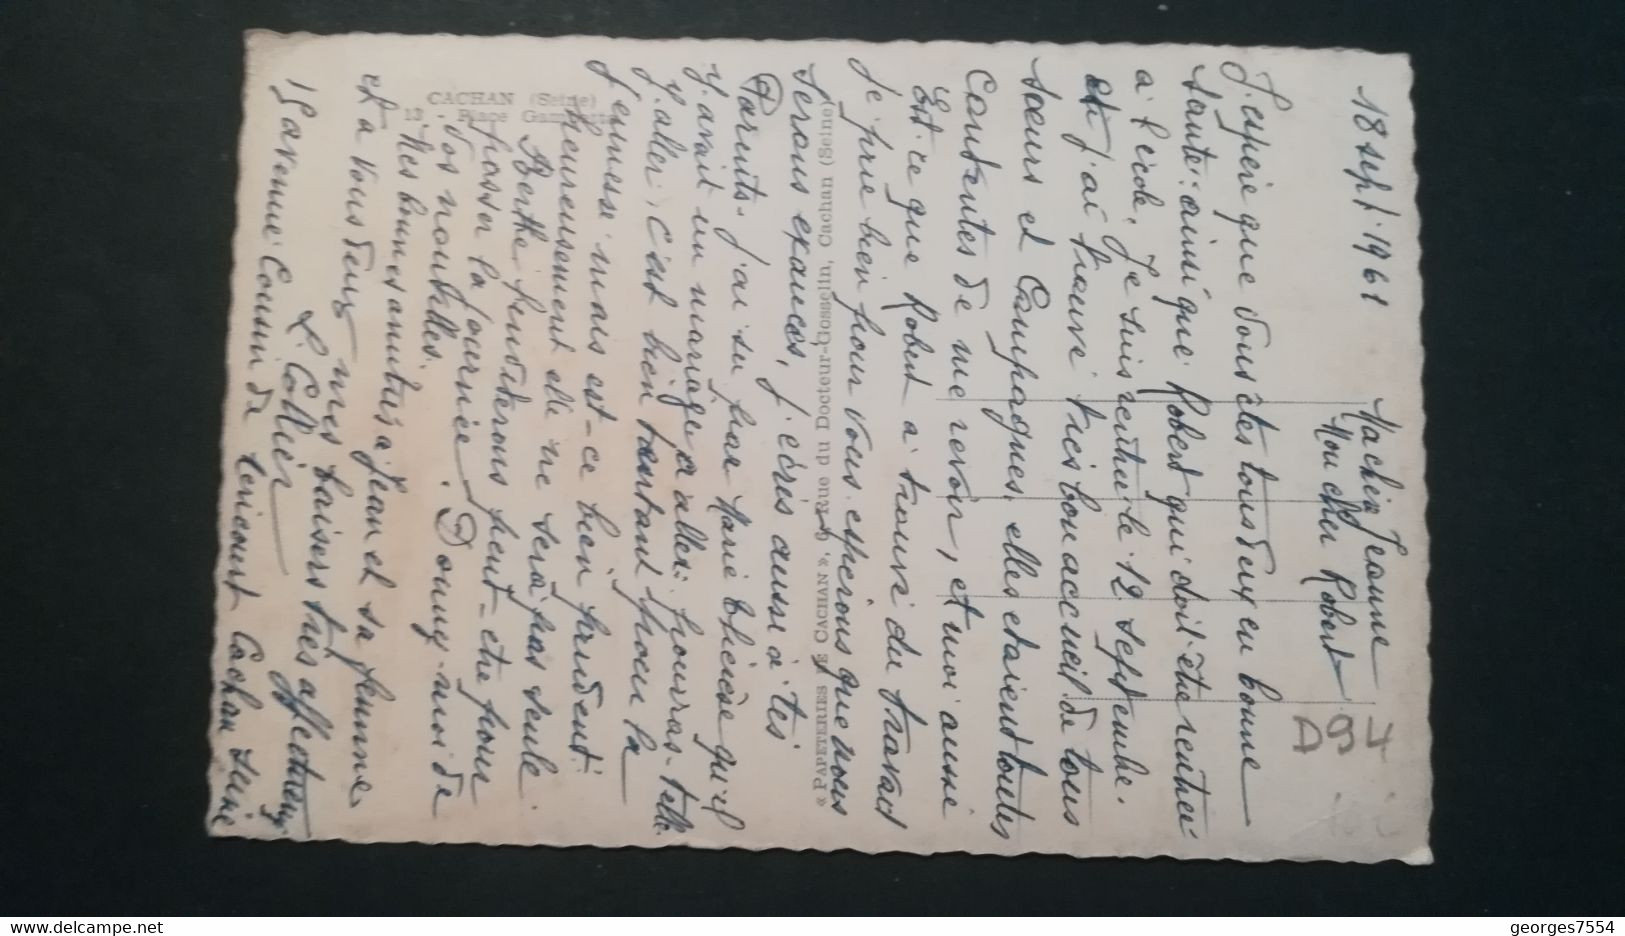 18 sept. 1961
Ma chère Jeanne
Mon cher Robert
J'espère que vous êtes tous deux en bonne
santé: ainsi que Robert qui doit être rentrée
a l'école. Je suis rentrée le 12 septembre.
et j'ai trouvé très bon accueil de tous
sœurs et Compagnes, elles etaient toutes
Contentes de me revoir, et moi aussi
Est-ce que Robert a trouvé du travail
je prie bien pour vous. espérons que nous
serons exaucés, j'écris aussi à tes
Parents. J'ai su par Marie qu'il
y avait un mariage a aller: pourras-tu
y aller, c'est bien tentant pour la
jeunesse mais est-ce bien prudent:
Heureusement elle ne sera pas seule.
Berthe peut-etre pour
passer la journée. Donnez-moi de
vos nouvelles.
Mes bonnes amitiés a Jean et sa femme.
et a vous deux mes baisers très affectueux
L. Collin
15 avenue Cousin de Cachan Seine
CACHAN (Seine)
12 - Place Gambetta
« PAPETERIES DE CACHAN », 9 Rue du Docteur-Gosselin, Cachan (Seine)
D94
georges7554